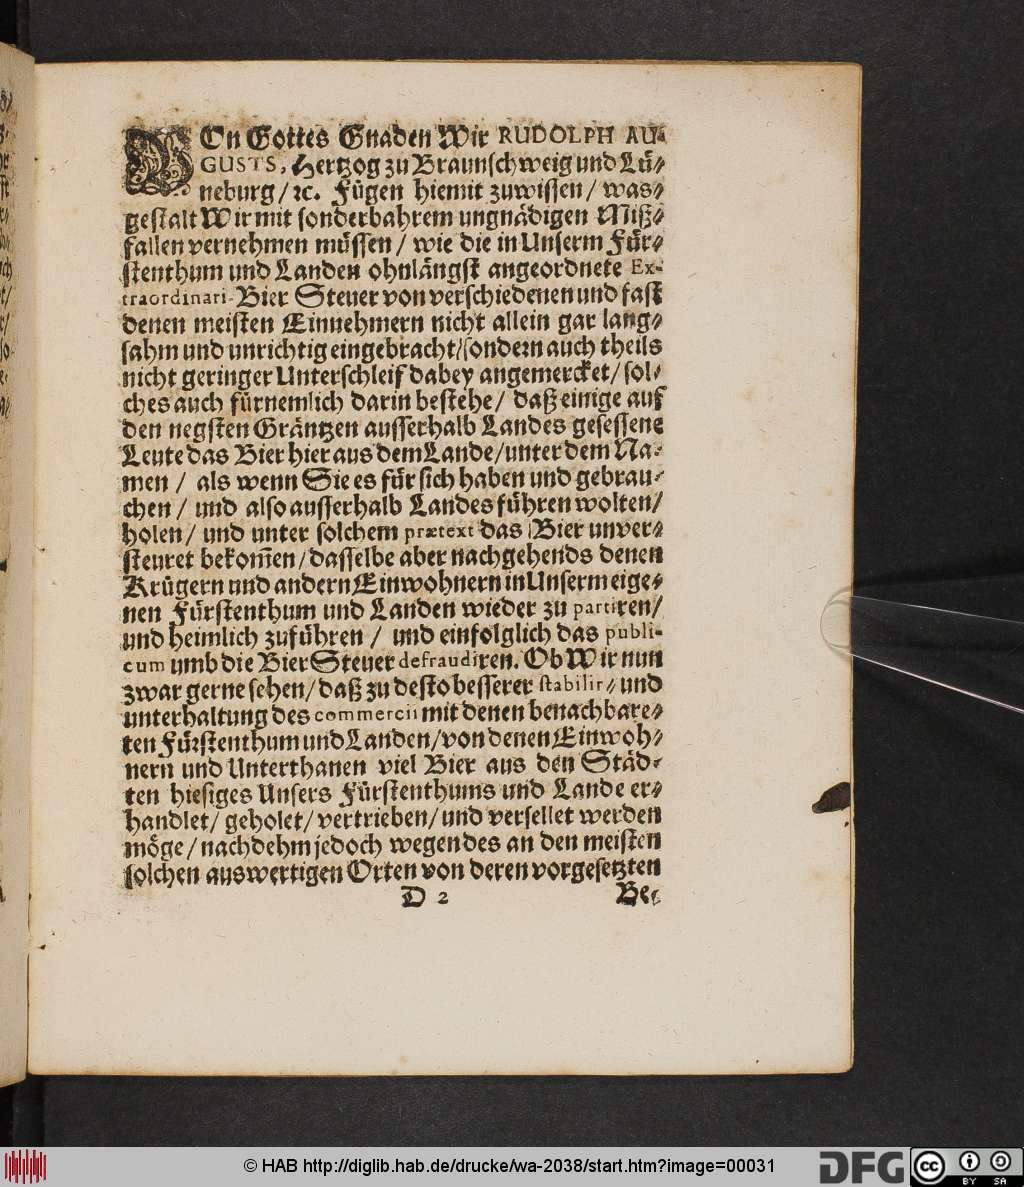 VOn Gottes Gnaden Wir RUDOLPH AU-
GUSTS, Hertzog zu Braunschweig und Lü-
neburg / ꝛc. Fügen hiemit zuwissen / was-
gestalt Wir mit sonderbahrem ungnädigen Miß-
fallen vernehmen müssen / wie die in Unserm Für-
stenthum und Landen ohnlängst angeordnete Ex-
traordinari-Bier Steuer von verschiedenen und fast
denen meisten Einnehmern nicht allein gar lang-
sahm und unrichtig eingebracht / sondern auch theils
nicht geringer Unterschleif dabey angemercket / sol-
ches auch fürnemlich darin bestehe / daß einige auf
den negsten Gräntzen ausserhalb Landes gesessene
Leute das Bier hier aus dem Lande / unter dem Na-
men / als wenn Sie es für sich haben und gebrau-
chen / und also ausserhalb Landes führen wolten /
holen / und unter solchem prætext das Bier unver-
steuret bekom̃en / dasselbe aber nachgehends denen
Krügern und andern Einwohnern in Unserm eige-
nen Fürstenthum und Landen wieder zu partiren /
und heimlich zuführen / und einfolglich das publi-
cum umb die Bier Steuer defraudiren. Ob Wir nun
zwar gerne sehen / daß zu desto besserer stabilir- und
unterhaltung des commercii mit denen benachbare-
ten Fürstenthum und Landen / von denen Einwoh-
nern und Unterthanen viel Bier aus den Städ-
ten hiesiges Unsers Fürstenthums und Lande er-
handlet / geholet / vertrieben / und versellet werden
möge / nachdehm jedoch wegen des an den meisten
solchen auswertigen Orten von deren vorgesetzten
D 2 Be-
© HAB http://diglib.hab.de/drucke/wa-2038/start.htm?image=00031
DFG
cc BY SA